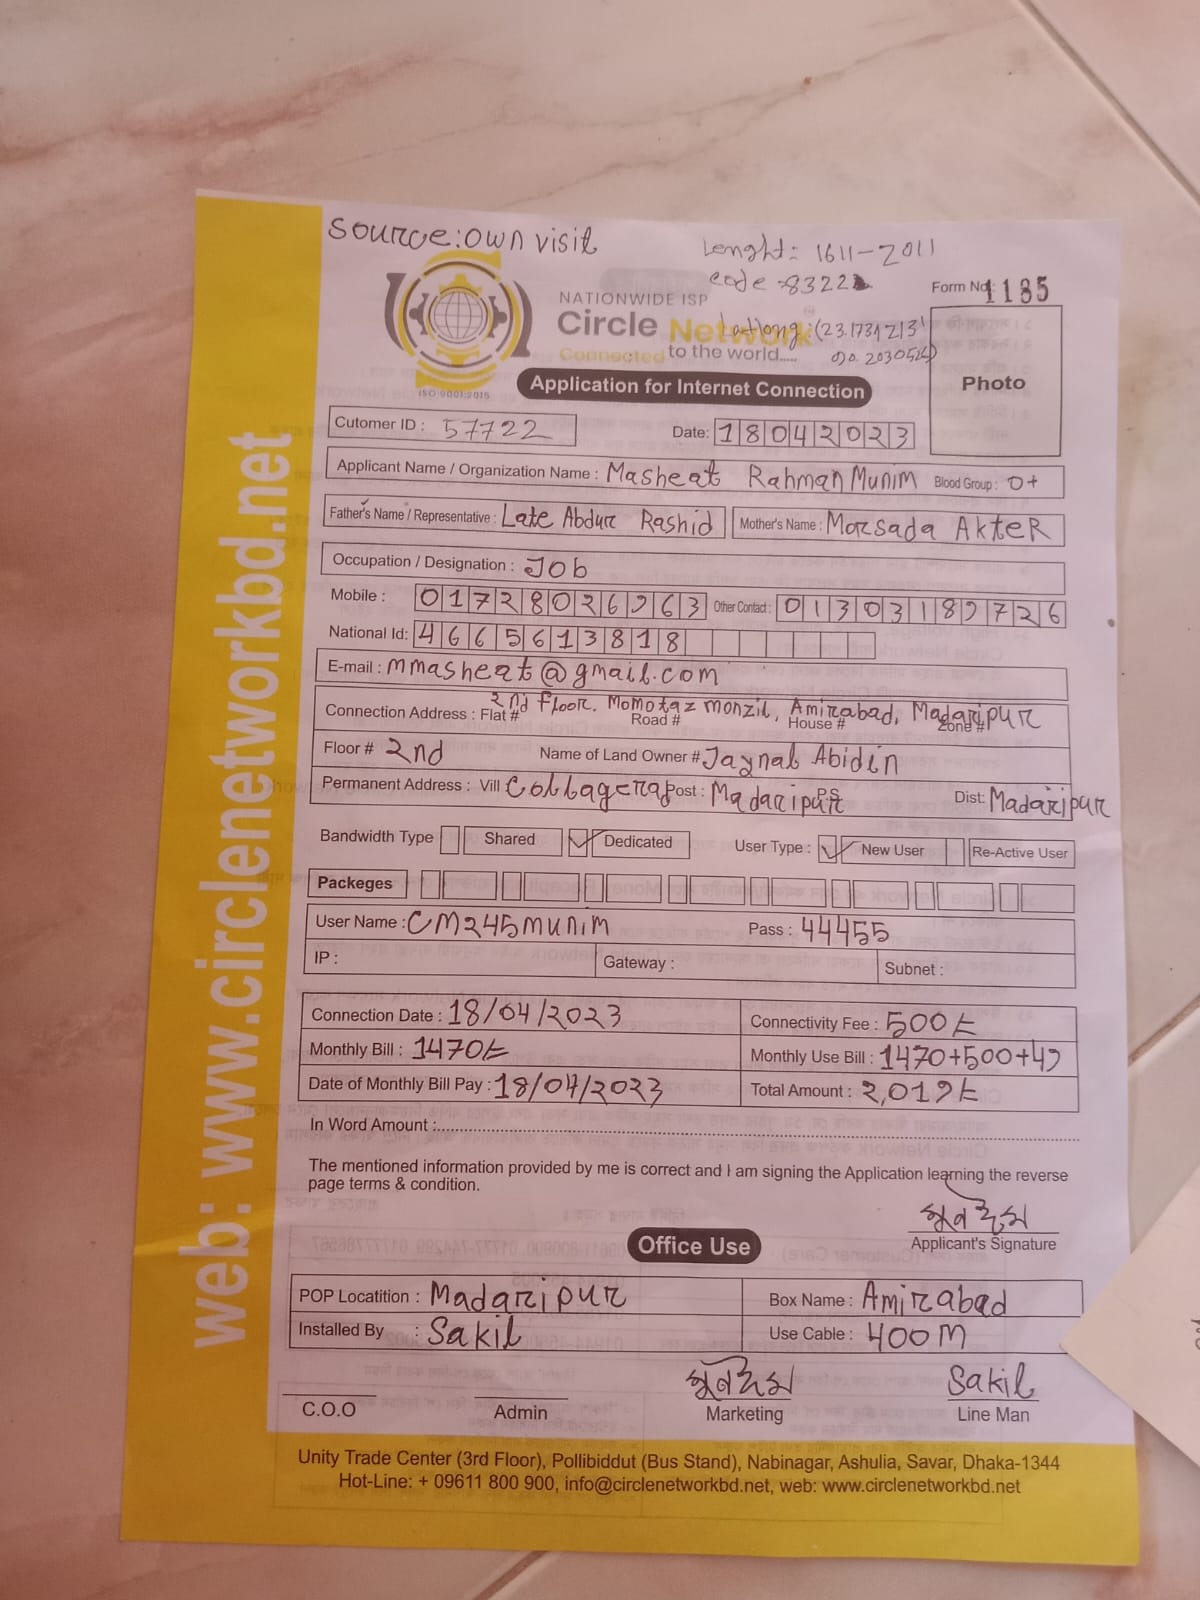 Source: own visit
Lenght: 1611-2011
code : 8322
NATIONWIDE ISP
Form No. 1185
Circle Network
Latlong: (23.1731213
Connected to the world.....
90.2030524)
ISO 9001:2015
Application for Internet Connection
Photo
Cutomer ID : 57722
Date: 18042023
Applicant Name / Organization Name : Masheat Rahman Munim Blood Group : O+
Father's Name / Representative : Late Abdur Rashid Mother's Name : Morsada AkteR
Occupation / Designation : Job
Mobile : 01728026963 Other Contact : 01303189726
National Id: 4665613818
E-mail : mmasheat@gmail.com
Connection Address : Flat # 2nd floor, Momotaz monzil, Amirabad, Madaripur Road # House # Zone #
Floor # 2nd Name of Land Owner # Jaynal Abidin
Permanent Address : Vill Collagerag Post : Madaripur P.S Dist: Madaripur
Bandwidth Type Shared ✓ Dedicated User Type : ✓ New User Re-Active User
Packeges
User Name : CM245munim Pass : 44455
IP : Gateway : Subnet :
Connection Date : 18/04/2023 Connectivity Fee : 500/=
Monthly Bill : 1470/= Monthly Use Bill : 1470+500+49
Date of Monthly Bill Pay : 18/04/2023 Total Amount : 2,019/=
In Word Amount :
The mentioned information provided by me is correct and I am signing the Application learning the reverse
page terms & condition.
Applicant's Signature
Office Use
POP Locatition : Madaripur Box Name : Amirabad
Installed By : Sakil Use Cable : 400M
Sakil
C.O.O Admin Marketing Line Man
Unity Trade Center (3rd Floor), Pollibiddut (Bus Stand), Nabinagar, Ashulia, Savar, Dhaka-1344
Hot-Line: + 09611 800 900, info@circlenetworkbd.net, web: www.circlenetworkbd.net
web: www.circlenetworkbd.net